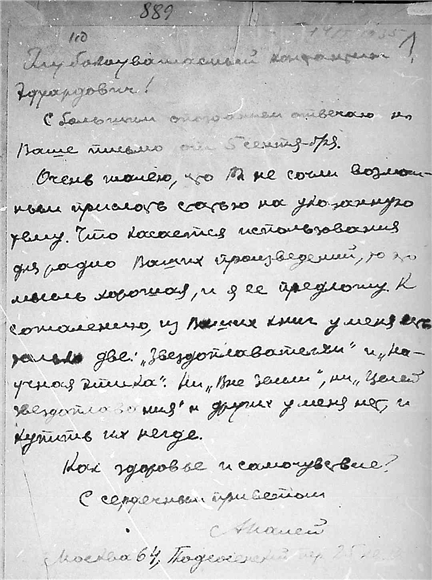 889
Глубокоуважаемый Константин
Эдуардович!
С большим опозданием отвечаю на
Ваше письмо от 5 сентября.
Очень жалею, что Вы не сочли возмож-
ным прислать статью на указанную
тему. Что касается использования
для радио Ваших произведений, то
мысль хорошая, и я ее предложу. К
сожалению, из Ваших книг у меня есть
только две: „Звездоплавателям" и „На-
учная этика". Ни „Вне Земли", ни „Целей
звездоплавания" и других у меня нет, и
купить их негде.
Как здоровье и самочувствие?
С сердечным приветом
Москва 64,